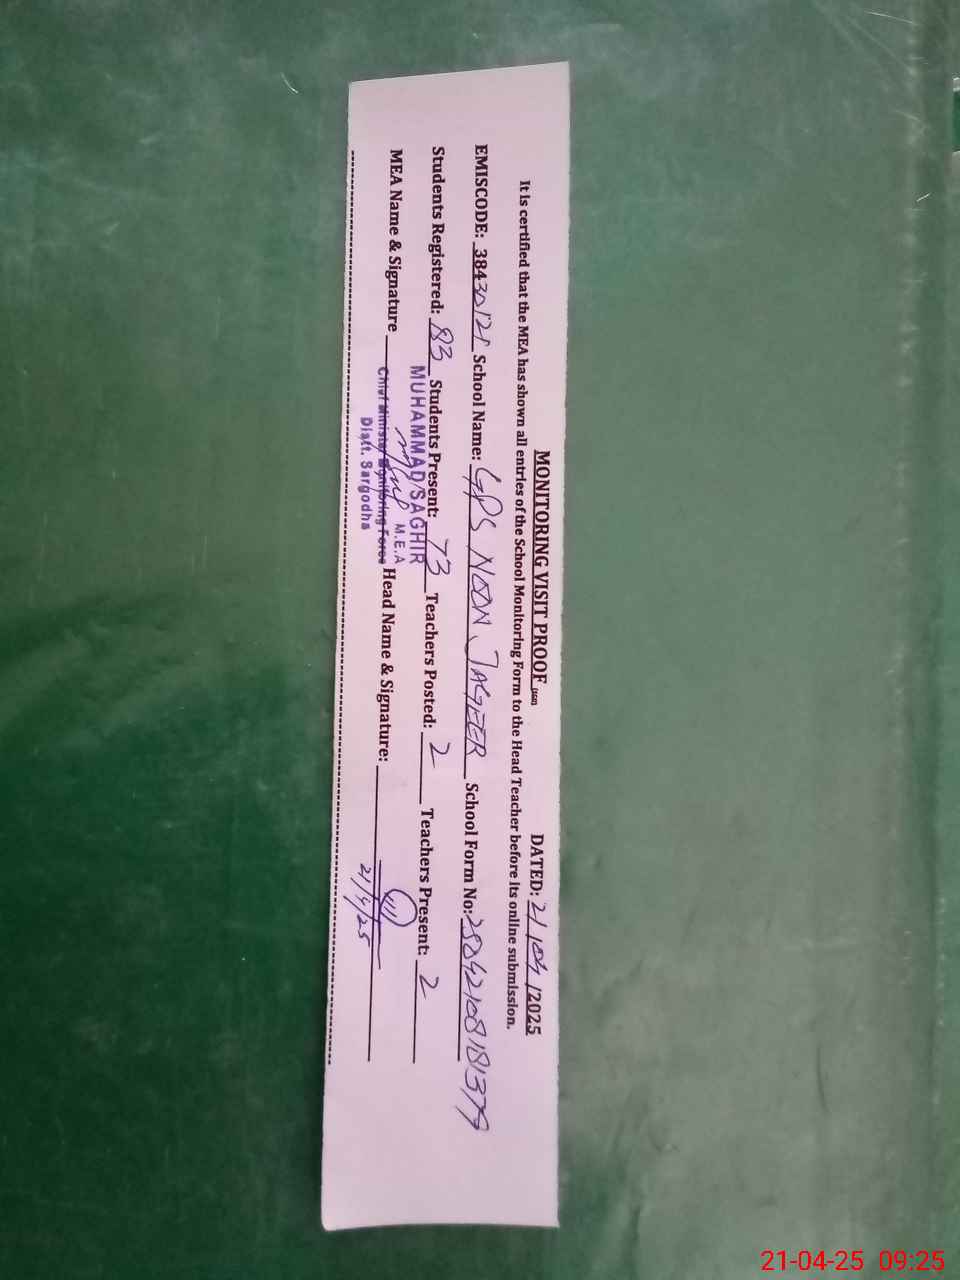 MONITORING VISIT PROOF DATED: 21/04/2025
It is certified that the MEA has shown all entries of the School Monitoring Form to the Head Teacher before its online submission.
EMISCODE: 38430121 School Name: GPS NOON JAGEER School Form No:
Students Registered: 83 Students Present: 73 Teachers Posted: 2 Teachers Present: 2
MUHAMMAD SAGHIR
M.E.A
MEA Name & Signature Chief Minister Monitoring Force Head Name & Signature:
Distt. Sargodha
21/4/25
21-04-25 09:25